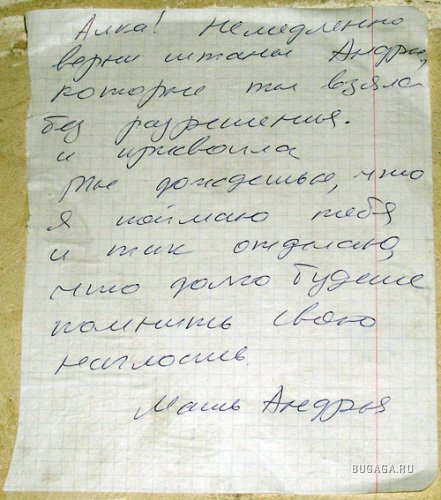 Алка! Немедленно
верни штаны Андрея,
которые ты взяла
без разрешения.
и присвоила
Ты дождешься, что
я поймаю тебя
и так отделаю,
что долго будешь
помнить свою
наглость
Мать Андрея
BUGAGA.RU